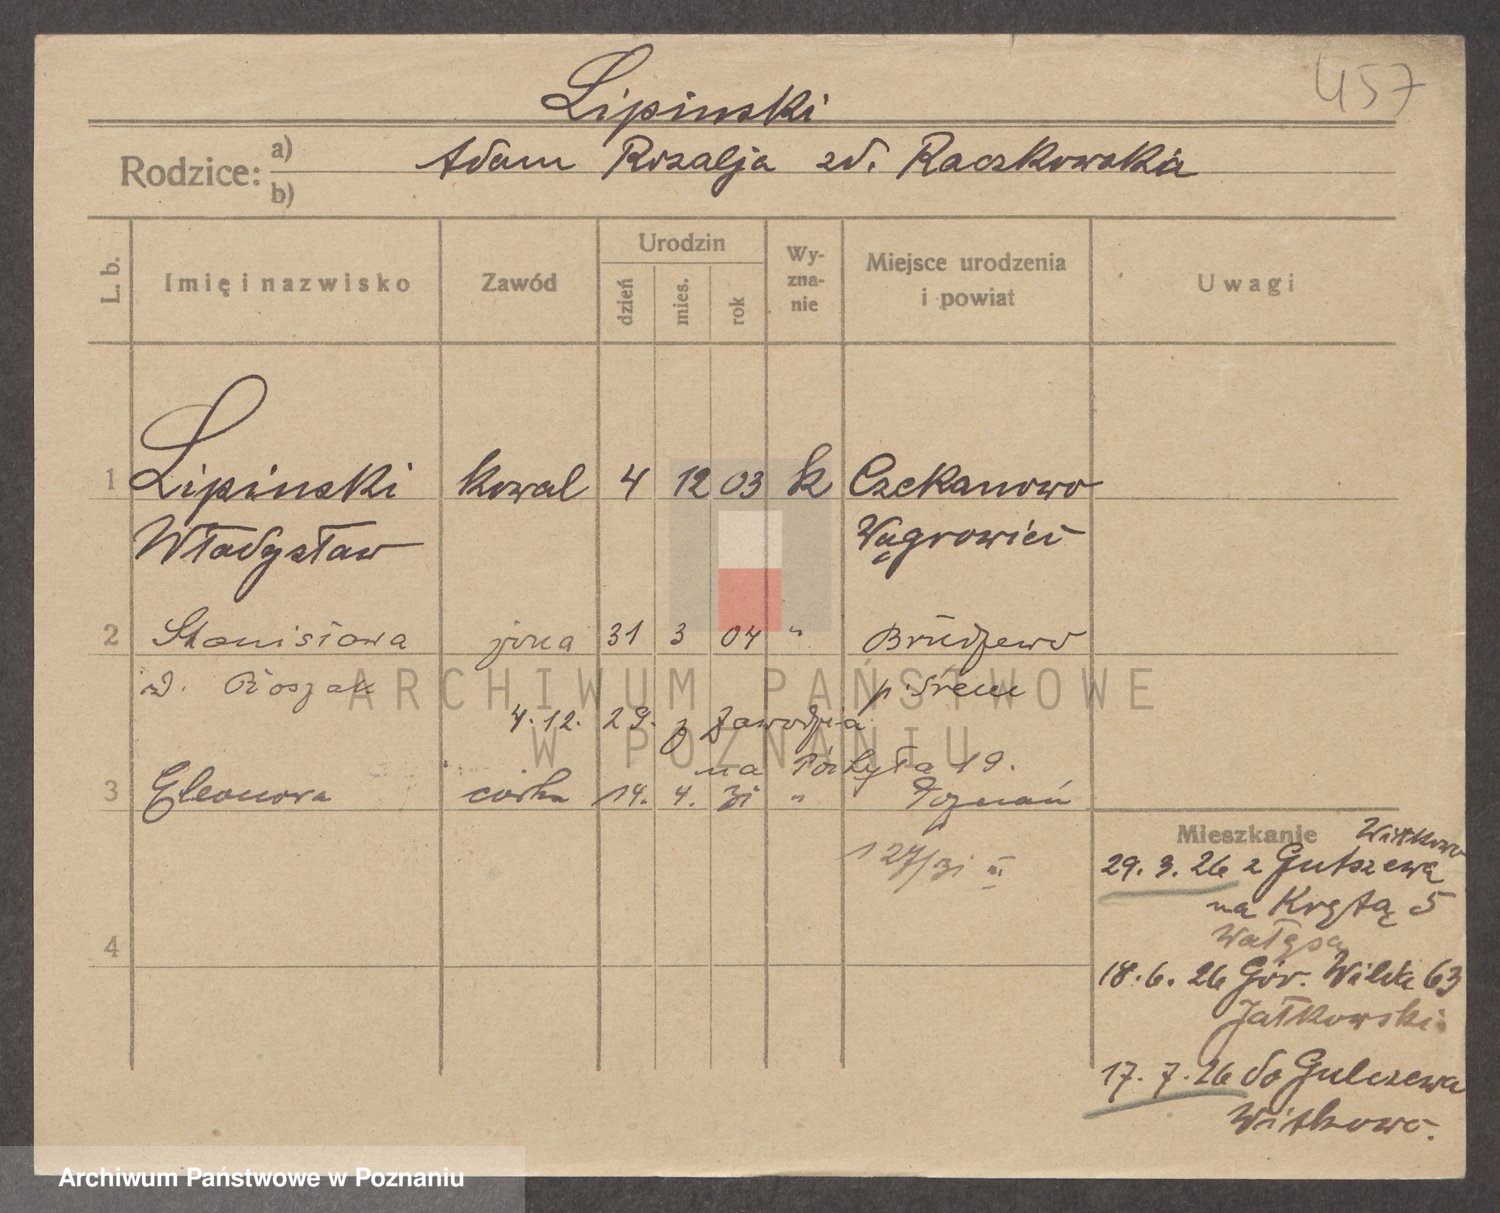 457
Lipinski
Rodzice: a) b) Adam Rozalja zd. Raczkowska
L. b. Imię i nazwisko Zawód Urodzin dzień mies. rok Wy-zna-nie Miejsce urodzenia i powiat Uwagi
1 Lipinski kowal 4 12 03 k Czekanowo
Władysław Wągrowiec
2 Stanisława żona 31 3 04 " Brudzewo
zd. Roszak p. Śrem
ARCHIWUM PAŃSTWOWE
4.12. 29. z Zawodzia
W POZNANIU
na 19.
3 Eleonora córka 14. 4. 31 " Poznań
Mieszkanie Witkowo
29. 3. 26 z
127/31
na Krętą 5
Wałęsa
4
18. 6. 26 Gór. Wilda 63
Jałkowski
17. 7. 26 do Gulczewa
Witkowo.
Archiwum Państwowe w Poznaniu